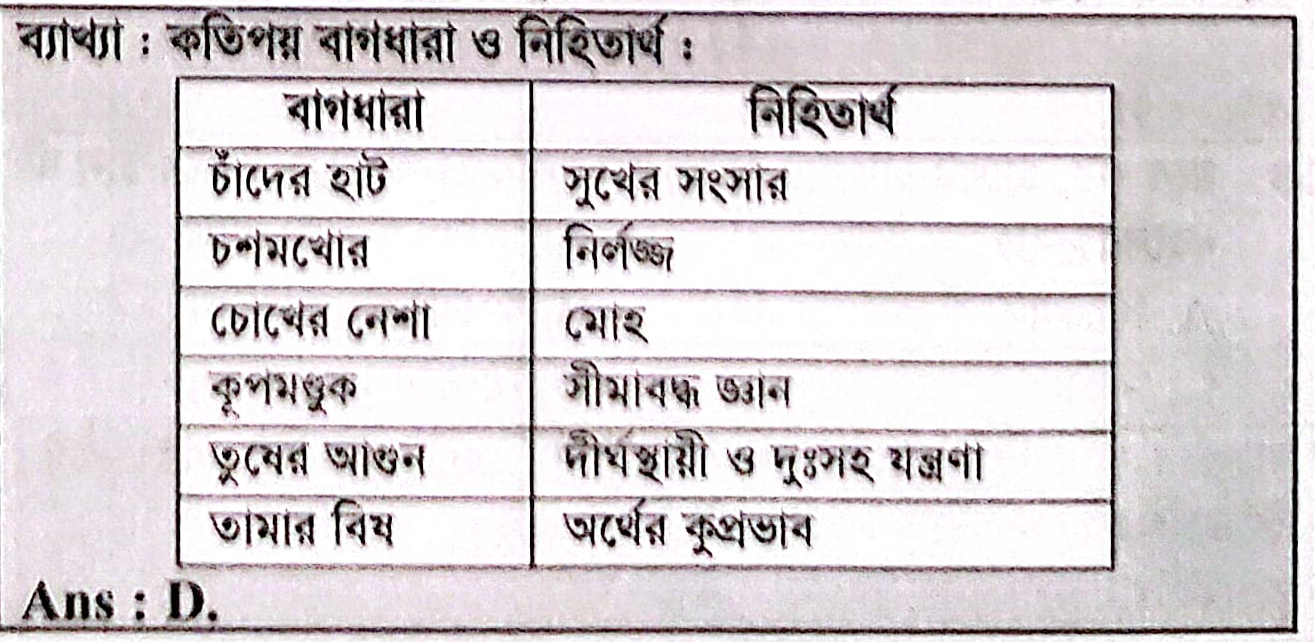 ব্যাখ্যা : কতিপয় বাগধারা ও নিহিতার্থ :
বাগধারা নিহিতার্থ
চাঁদের হাট সুখের সংসার
চশমখোর নির্লজ্জ
চোখের নেশা মোহ
কূপমণ্ডুক সীমাবদ্ধ জ্ঞান
তুষের আগুন দীর্ঘস্থায়ী ও দুঃসহ যন্ত্রণা
তামার বিষ অর্থের কুপ্রভাব
Ans : D.